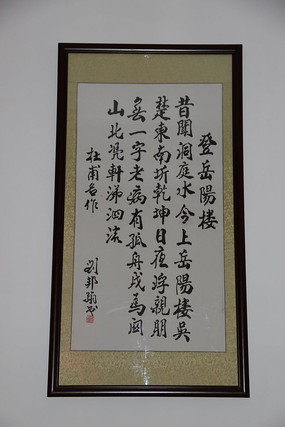 登岳陽楼
昔聞洞庭水今上岳陽楼吴
楚東南坼乾坤日夜浮親朋
無一字老病有孤舟戍馬関
山北凭軒涕泗流
杜甫名作
劉邦